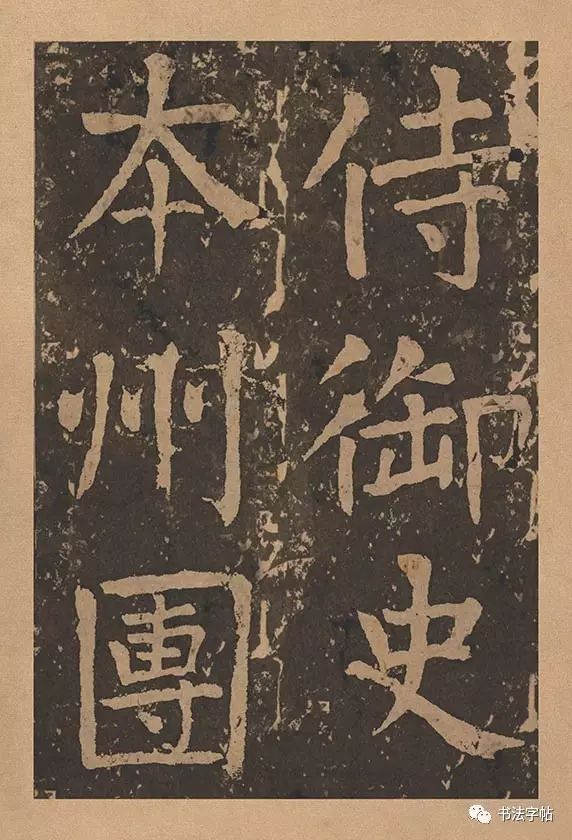 侍御史
本州團
书法字帖